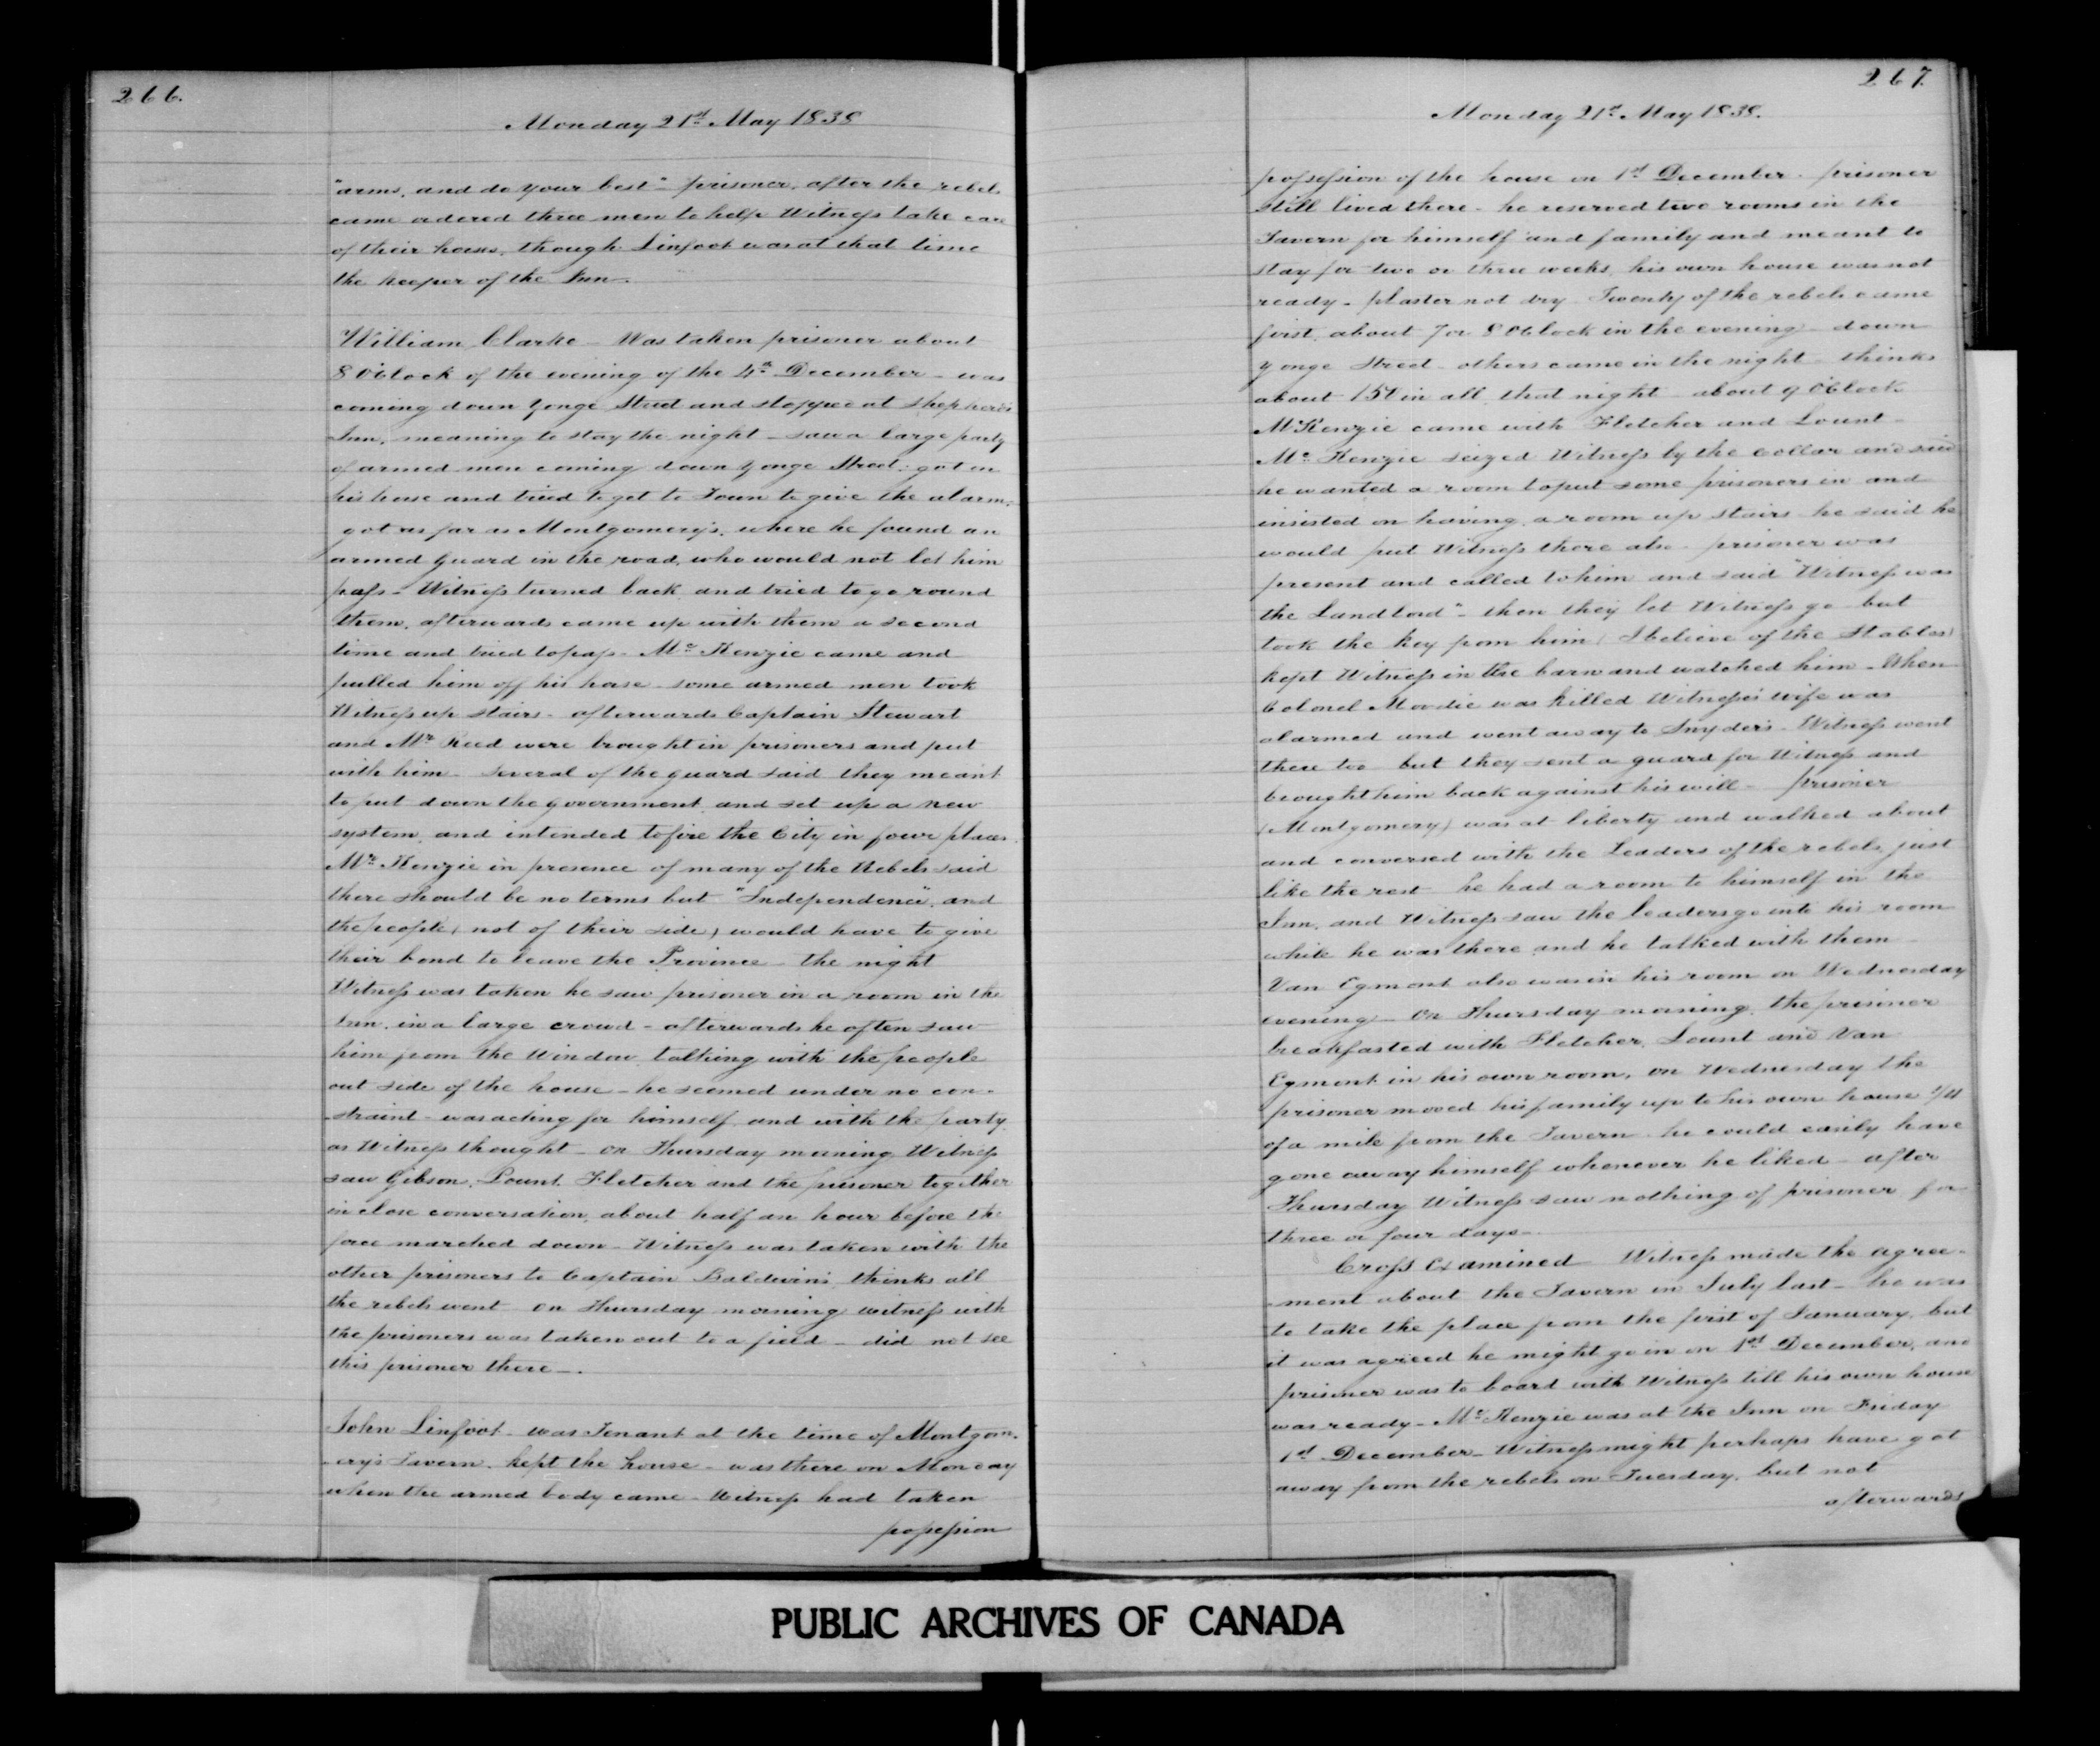 266.
Monday 21st May 1838
"arms, and do your best" - prisoner, after the rebels
came ordered three men to help Witness take care
of their horses, though Linfoot was at that time
the keeper of the Inn.
William Clarke - Was taken prisoner about
8 OClock of the evening of the 4th December - was
coming down Yonge Street and stopped at Shepherd's
Inn, meaning to stay the night - saw a large party
of armed men coming down Yonge Street; got on
his horse and tried to get to Town to give the alarm,
got as far as Montgomery's, where he found an
armed guard in the road, who would not let him
pass - Witness turned back and tried to go round
them, afterwards came up with them a second
time and tried to pass - Mc Kenzie came and
pulled him off his horse - some armed men took
Witness up stairs - afterwards Captain Stewart
and Mr Reed were brought in prisoners and put
with him - several of the guard said they meant
to put down the government and set up a new
system, and intended to fire the City in four places.
Mc Kenzie in presence of many of the Rebels said
there should be no terms but "Independence", and
the people (not of their side) would have to give
their bond to leave the Province - the night
Witness was taken he saw prisoner in a room in the
Inn, in a large crowd - afterwards he often saw
him from the Window talking with the people
out side of the house - he seemed under no con-
-straint - was acting for himself and with the party,
as Witness thought - on Thursday morning Witness
saw Gibson, Lount, Fletcher and the prisoner together
in close conversation, about half an hour before the
force marched down - Witness was taken with the
other prisoners to Captain Baldwin's thinks all
the rebels went on Thursday morning witness with
the prisoners was taken out to a field - did not see
this prisoner there -.
John Linfoot - was Tenant at the time of Montgom-
-ery's Tavern, kept the house - was there on Monday
when the armed body came - Witness had taken
possession
267.
Monday 21st May 1838.
possession of the house on 1st December - prisoner
still lived there - he reserved two rooms in the
Tavern for himself and family and meant to
stay for two or three weeks, his own house was not
ready - plaster not dry Twenty of the rebels came
first, about 7 or 8 OClock in the evening - down
Yonge Street - others came in the night - thinks
about 150 in all that night - about 9 OClock
McKenzie came with Fletcher and Lount -
Mc Kenzie seized Witness by the collar and said
he wanted a room to put some prisoners in and
insisted on having a room up stairs - he said he
would put Witness there also - prisoner was
present and called to him and said "Witness was
the Landlord" - then they let Witness go - but
took the key from him (I believe of the Stables)
kept Witness in the barn and watched him - When
Colonel Moodie was killed Witness' wife was
alarmed and went away to Snyder's - Witness went
there too but they sent a guard for Witness and
brought him back against his will - prisoner
(Montgomery) was at liberty and walked about
and conversed with the Leaders of the rebels, just
like the rest - he had a room to himself in the
Inn, and Witness saw the leaders go into his room
while he was there and he talked with them -
Van Egmont also was in his room on Wednesday
evening - On Thursday morning, the prisoner
breakfasted with Fletcher, Lount and Van
Egmont in his own room, on Wednesday the
prisoner moved his family up to his own house 1/4
of a mile from the Tavern - he could easily have
gone away himself whenever he liked - after
Thursday Witness saw nothing of prisoner for
three or four days -
Cross Examined - Witness made the agree-
-ment about the Tavern in July last - he was
to take the place from the first of January, but
it was agreed he might go in on 1st December, and
prisoner was to board with Witness till his own house
was ready - Mc Kenzie was at the Inn on Friday
1st December - Witness might perhaps have got
away from the rebels on Tuesday, but not
afterwards
PUBLIC ARCHIVES OF CANADA